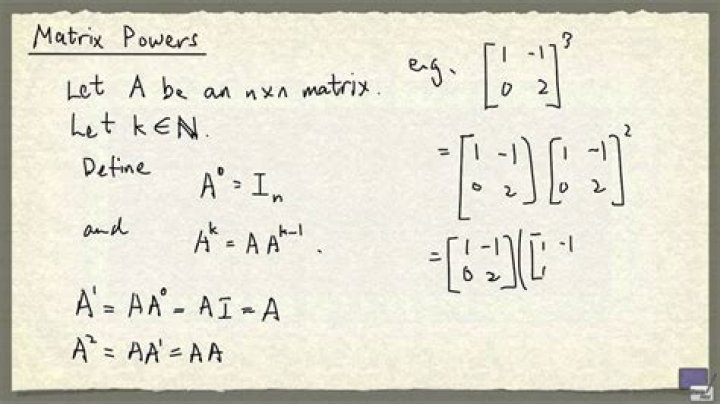 Matrix Powers
Let A be an n×n matrix.
Let k∈ℕ.
Define A⁰ = Iₙ
and Aᵏ = A Aᵏ⁻¹.
A¹ = AA⁰ = AI = A
A² = AA¹ = AA
e.g. [1 -1; 0 2]³
= [1 -1; 0 2] [1 -1; 0 2]²
= [1 -1; 0 2] ([1 -1